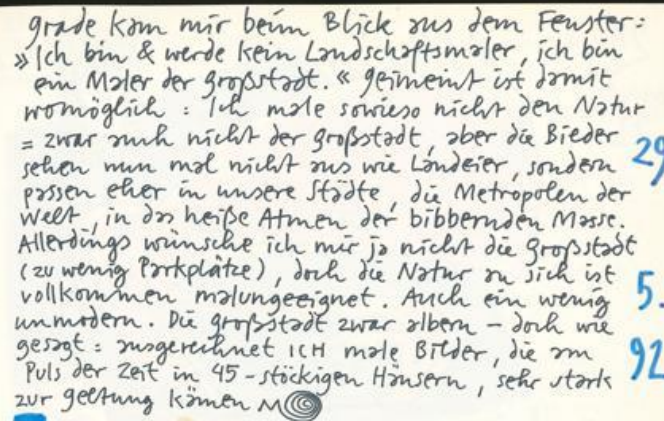 grade kam mir beim Blick aus dem Fenster:
»Ich bin & werde kein Landschaftsmaler, ich bin
ein Maler der Großstadt.« geimeint ist damit
womöglich: Ich male sowieso nicht den Natur
= zwar auch nicht der großstadt, aber die Bieder
sehen nun mal nicht aus wie Landeier, sondern
passen eher in unsere Städte, die Metropolen der
Welt, in das heiße Atmen der bibbernden Masse.
Allerdings wünsche ich mir ja nicht die Großstadt
(zu wenig Parkplätze), doch die Natur an sich ist
vollkommen malungeeignet. Auch ein wenig
unmodern. Die großstadt zwar albern – doch wie
gesagt: ausgerechnet ICH male Bilder, die am
Puls der Zeit in 45-stöckigen Häusern, sehr stark
zur geltung kämen
29
5.
92